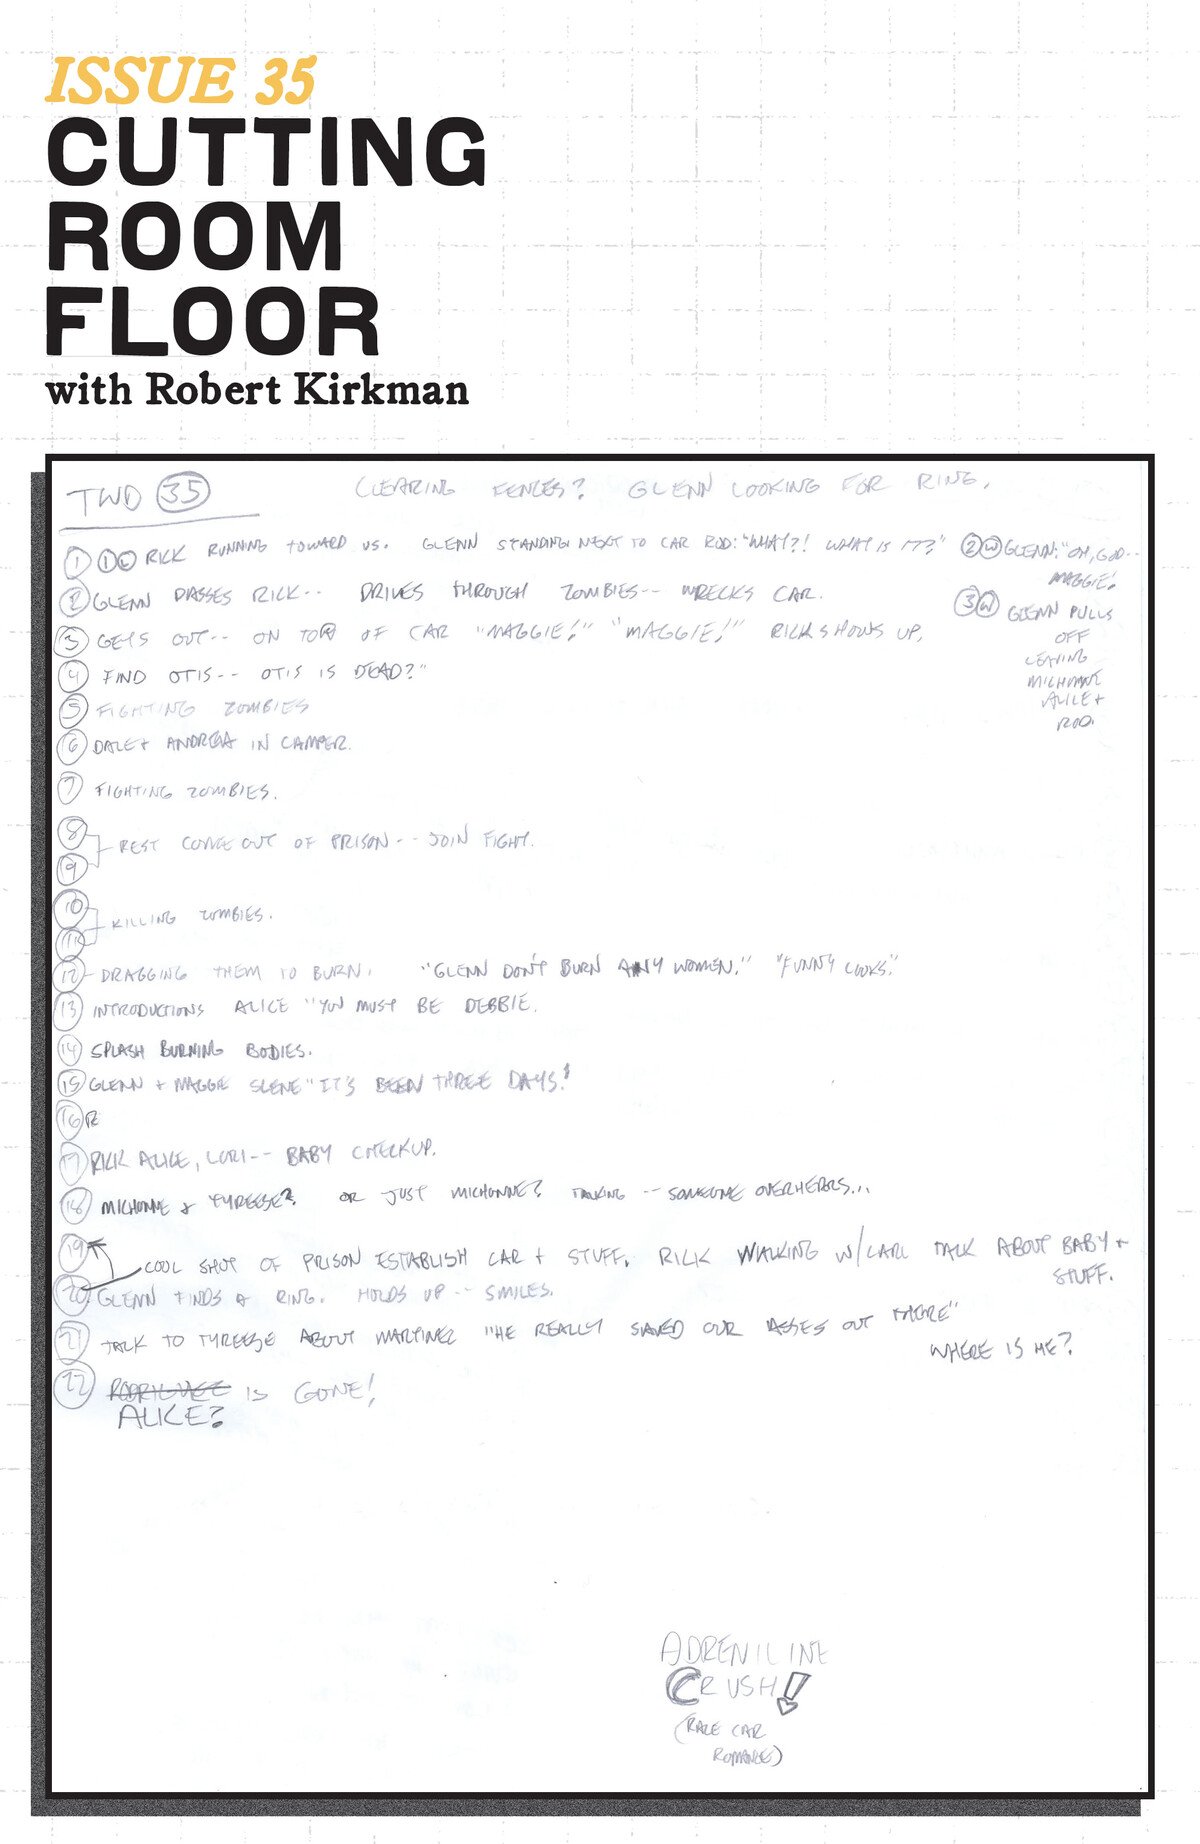 ISSUE 35
CUTTING
ROOM
FLOOR
with Robert Kirkman
TWD 35 CLEARING FENCES? GLENN LOOKING FOR RING.
1 1 RICK RUNNING TOWARD US. GLENN STANDING NEXT TO CAR ROD: "WHAT?! WHAT IS IT?" 2 W GLENN: "OH, GOD--
MAGGIE!
2 GLENN PASSES RICK-- DRIVES THROUGH ZOMBIES-- WRECKS CAR.
3 W GLENN PULLS
OFF
LEAVING
MICHONNE
ALICE +
ROD.
3 GETS OUT-- ON TOP OF CAR "MAGGIE!" "MAGGIE!" RICK SHOWS UP,
4 FIND OTIS-- OTIS IS DEAD?"
5 FIGHTING ZOMBIES
6 DALE + ANDREA IN CAMPER.
7 FIGHTING ZOMBIES.
8
9 REST COME OUT OF PRISON-- JOIN FIGHT.
10
11 KILLING ZOMBIES.
12 - DRAGGING THEM TO BURN. "GLENN DON'T BURN ANY WOMEN." "FUNNY LOOKS."
13 INTRODUCTIONS ALICE "YOU MUST BE DEBBIE.
14 SPLASH BURNING BODIES.
15 GLENN + MAGGIE SCENE "IT'S BEEN THREE DAYS!
16 R
17 RICK ALICE, LORI-- BABY CHECKUP.
18 MICHONNE & TYREESE? OR JUST MICHONNE? TALKING -- SOMEONE OVERHEARS...
19 COOL SHOT OF PRISON ESTABLISH CAR + STUFF. RICK WALKING W/CARL TALK ABOUT BABY +
STUFF.
20 GLENN FINDS A RING. HOLDS UP -- SMILES.
21 TALK TO TYREESE ABOUT MARTINEZ "HE REALLY SAVED OUR ASSES OUT THERE"
WHERE IS HE?
22 RODRIGUEZ IS GONE!
ALICE?
ADRENILINE
CRUSH!
(RACE CAR
ROMANCE)